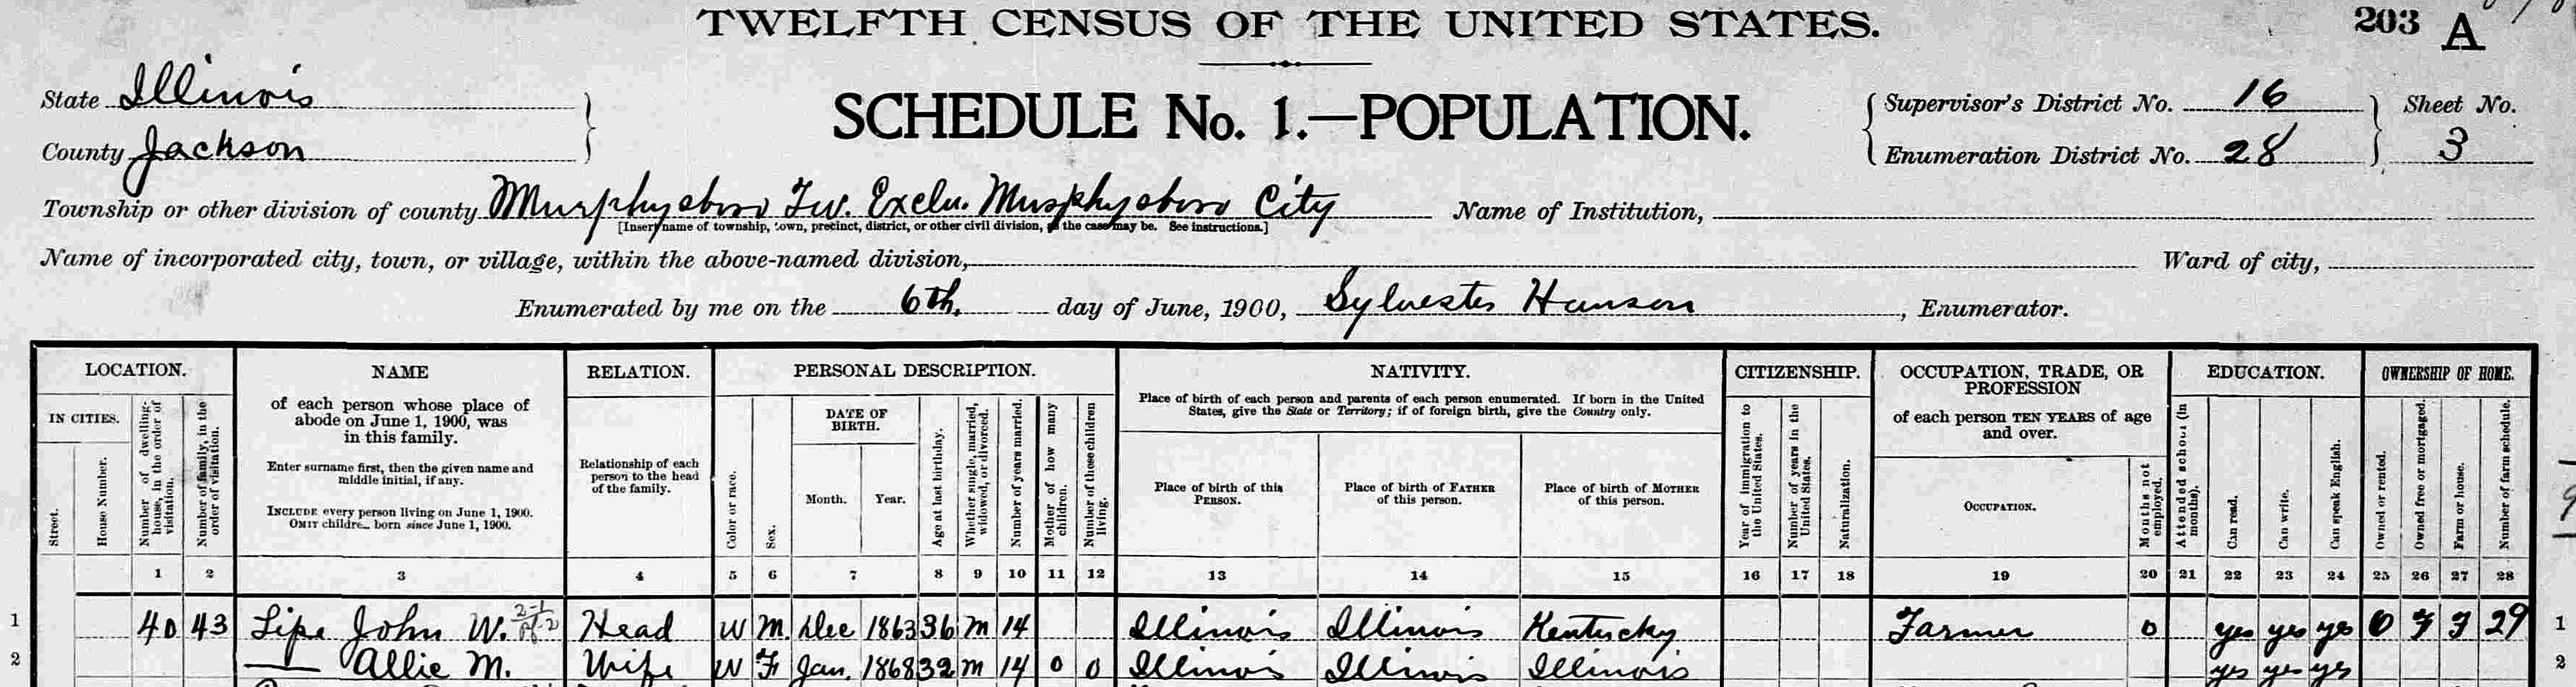 TWELFTH CENSUS OF THE UNITED STATES.
203 A
State Illinois
County Jackson
SCHEDULE No. 1.—POPULATION.
Supervisor's District No. 16
Enumeration District No. 28
Sheet No.
3
Township or other division of county Murphysboro Tw. Exclu. Murphysboro City Name of Institution,
[Insert name of township, town, precinct, district, or other civil division, as the case may be. See instructions.]
Name of incorporated city, town, or village, within the above-named division, Ward of city,
Enumerated by me on the 6th. day of June, 1900, Sylvester Hanson, Enumerator.
LOCATION.
IN CITIES.
Street.
House Number.
Number of dwelling-house, in the order of visitation.
Number of family, in the order of visitation.
NAME
of each person whose place of
abode on June 1, 1900, was
in this family.
Enter surname first, then the given name and
middle initial, if any.
INCLUDE every person living on June 1, 1900.
OMIT children born since June 1, 1900.
RELATION.
Relationship of each
person to the head
of the family.
PERSONAL DESCRIPTION.
Color or race.
Sex.
DATE OF
BIRTH.
Month. Year.
Age at last birthday.
Whether single, married, widowed, or divorced.
Number of years married.
Mother of how many children.
Number of these children living.
NATIVITY.
Place of birth of each person and parents of each person enumerated. If born in the United
States, give the State or Territory; if of foreign birth, give the Country only.
Place of birth of this
PERSON.
Place of birth of FATHER
of this person.
Place of birth of MOTHER
of this person.
CITIZENSHIP.
Year of immigration to the United States.
Number of years in the United States.
Naturalization.
OCCUPATION, TRADE, OR
PROFESSION
of each person TEN YEARS of age
and over.
OCCUPATION.
Months not employed.
EDUCATION.
Attended school (in months).
Can read.
Can write.
Can speak English.
OWNERSHIP OF HOME.
Owned or rented.
Owned free or mortgaged.
Farm or house.
Number of farm schedule.
1 2 3 4 5 6 7 8 9 10 11 12 13 14 15 16 17 18 19 20 21 22 23 24 25 26 27 28
1 40 43 Lipe John W. Head W M. Dec 1863 36 M 14 Illinois Illinois Kentucky Farmer 0 yes yes yes O F F 29 1
2 — Allie M. Wife W F Jan. 1868 32 M 14 0 0 Illinois Illinois Illinois yes yes yes 2